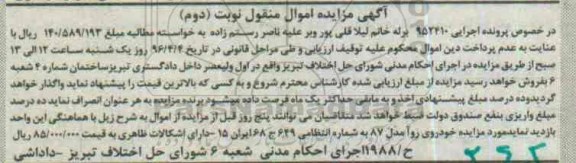 آگهی مزایده اموال منقول نوبت (دوم)
در خصوص پرونده اجرایی ۹۵۲۴۱۰ برله خانم لیلا قلی پور وبر علیه ناصر رستم زاده به خواسته مطالبه مبلغ ۱۴۰/۵۸۹/۱۹۳ ریال با
عنایت به عدم پرداخت دین اموال محکوم علیه توقیف ارزیابی و طی مراحل قانونی در تاریخ ۹۶/۴/۴ روز یک شنبه ساعت ۱۲ الی ۱۳
صبح از طریق مزایده در اجرای احکام مدنی شورای حل اختلاف تبریز واقع در اول ولیعصر داخل دادگستری تبریز ساختمان شماره ۴ شعبه
۶ بفروش خواهد رسید مزایده از مبلغ ارزیابی شده کارشناس محترم شروع و به کسی که بالاترین قیمت را پیشنهاد نماید واگذار خواهد
گردید و ده درصد مبلغ پیشنهادی اخذ و به مابقی حداکثر یک ماه فرصت داده میشود برنده مزایده به هر عنوان انصراف نماید ده درصد
مبلغ واریزی بنفع صندوق دولت ضبط خواهد شد متقاضیان می توانند پنج روز قبل از مزایده از اموال به شرح زیل با هماهنگی این واحد
بازدید نمایند مورد مزایده خودروی روآ مدل ۸۷ به شماره انتظامی ۶۴۹ ج ۱۶۸ ایران ۱۵ -دارای اشکالات ظاهری به قیمت ۸۵/۰۰۰/۰۰۰ ریال
ح/۱۱۹۸۸ اجرای احکام مدنی شعبه ۶ شورای حل اختلاف تبریز -داداشی